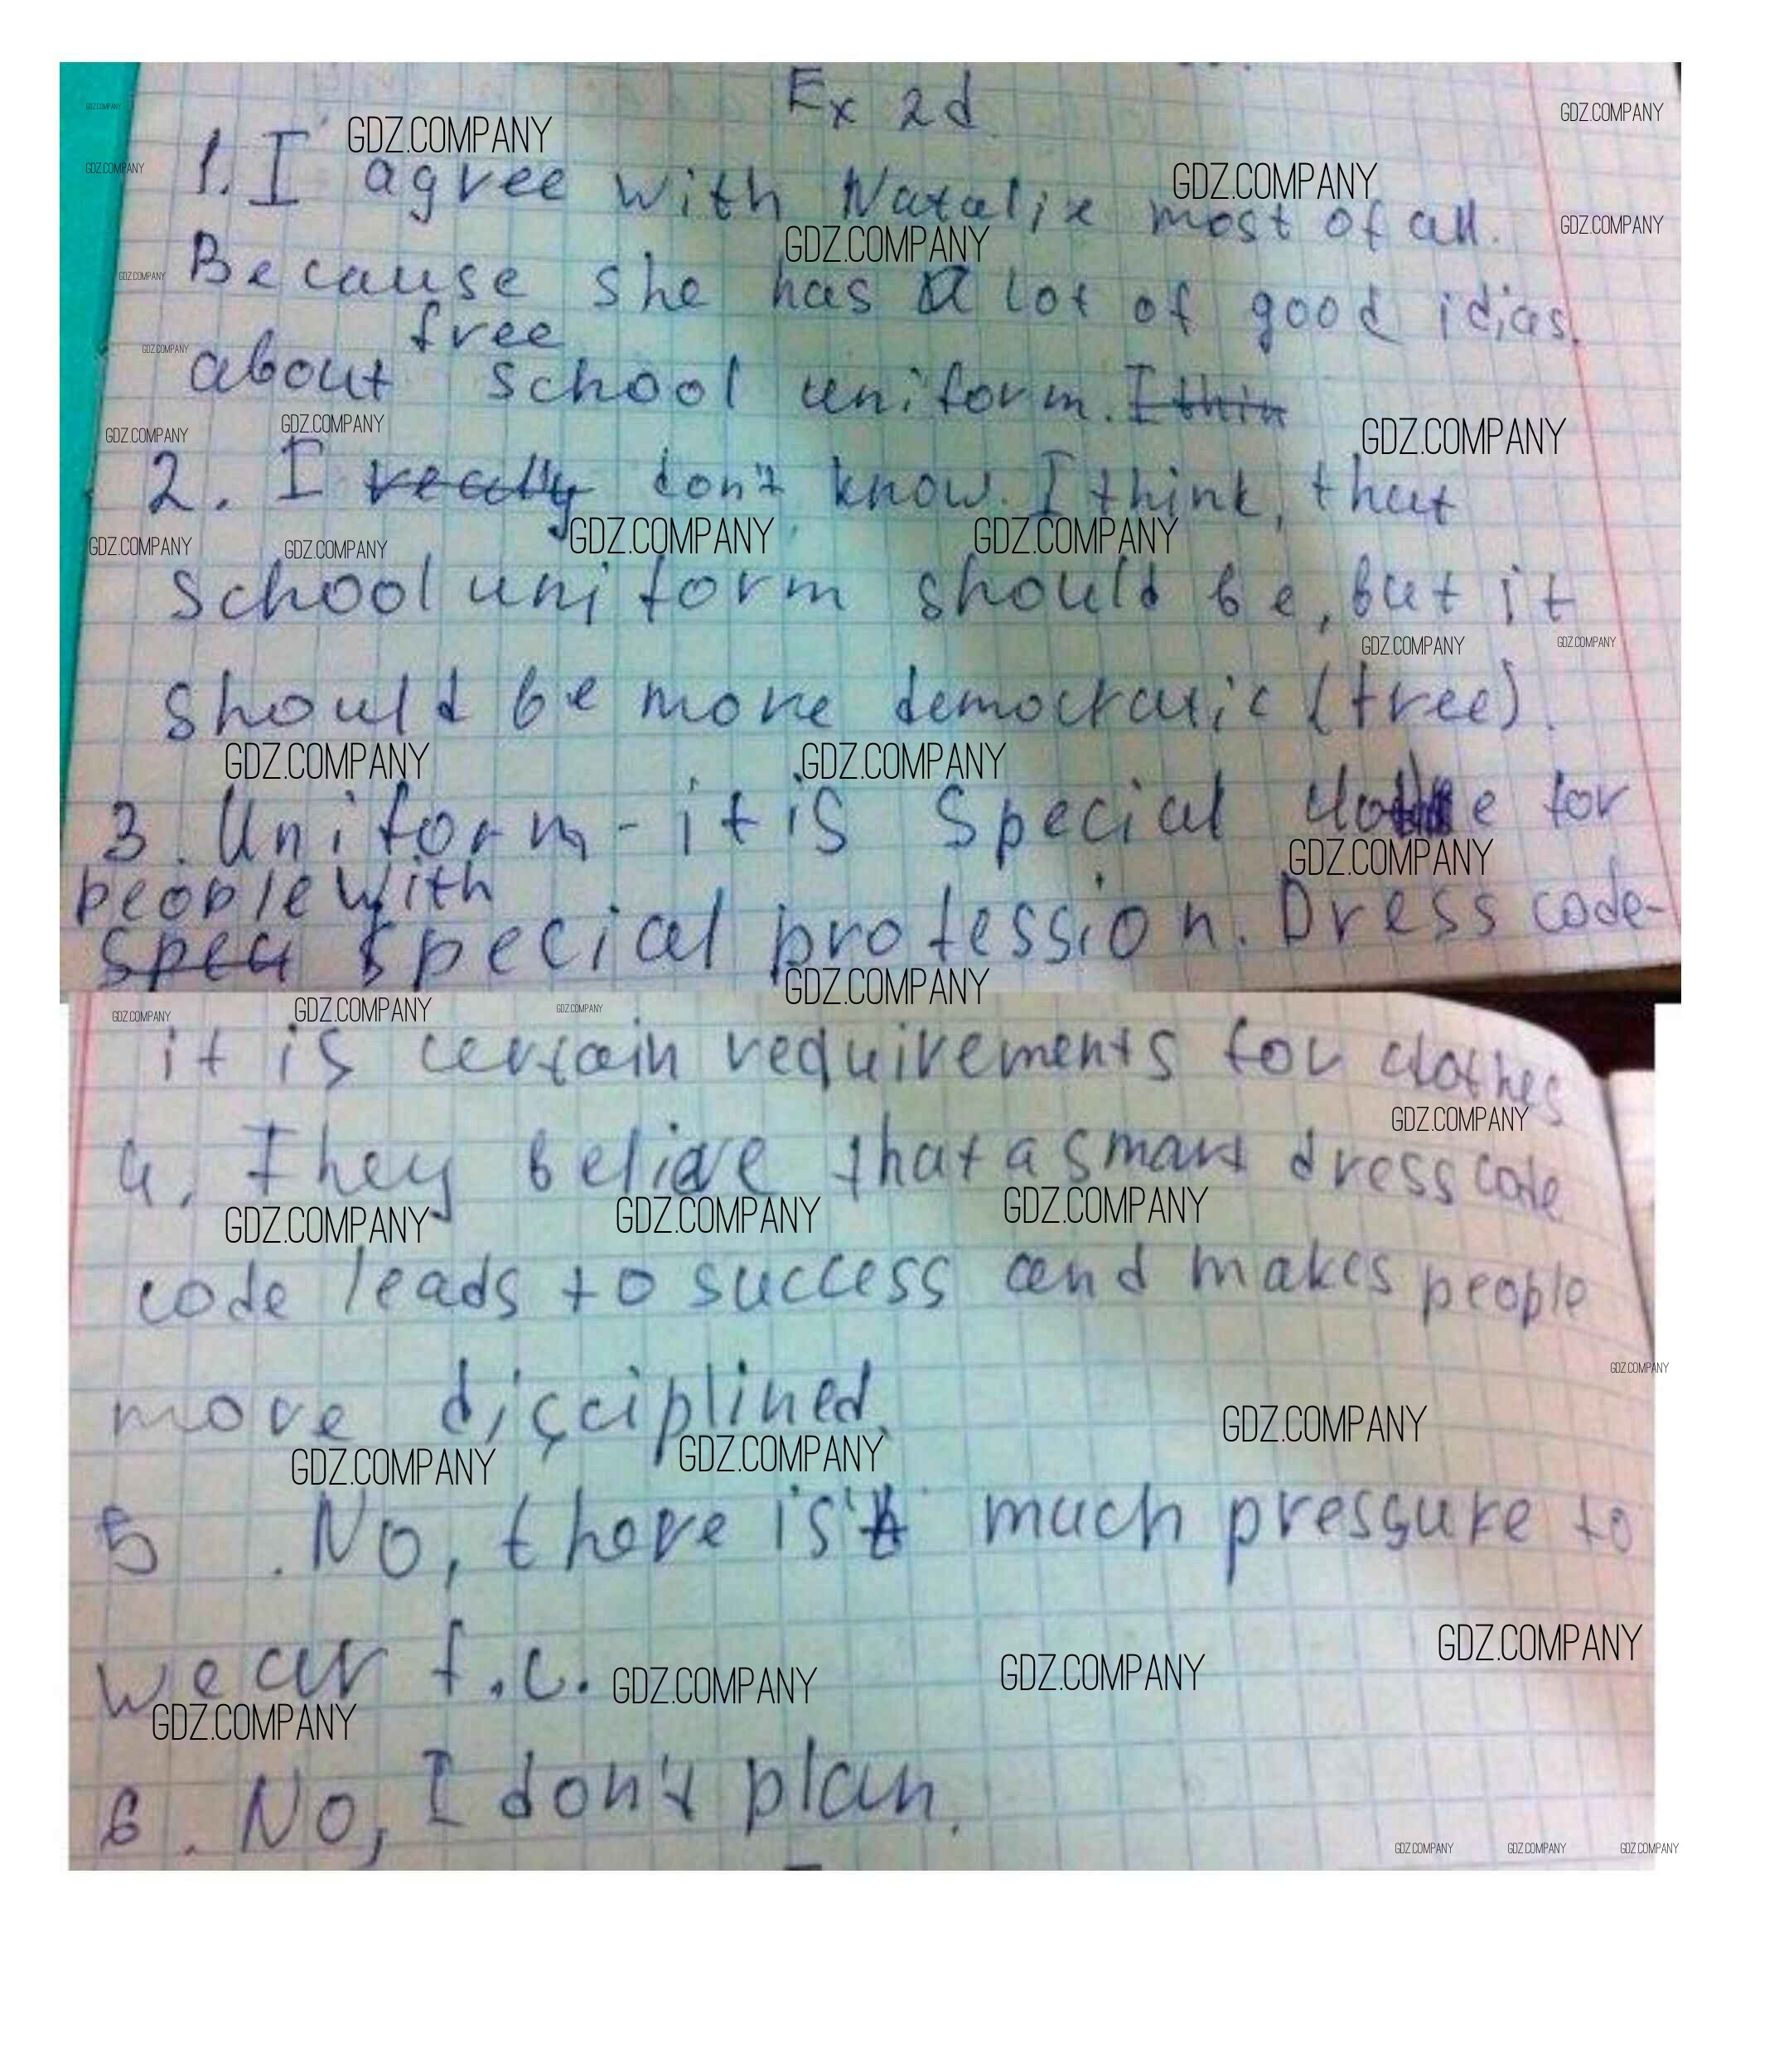 Ex 2d
1. I agree with Natalie most of all.
Because she has a lot of good idias.
free
about school uniform. I thin
2. I really don't know. I think, that
school uniform should be, but it
should be more democratic (free).
3. Uniform - it is special for
people with
spea special profession. Dress code-
it is certain requirements for clothes
4. They believe that a smart dress code
code leads to success and makes people
more disciplined.
5. No, there is't much pressure to
wear f.c.
6. No, I don't plan.
GDZ.COMPANY